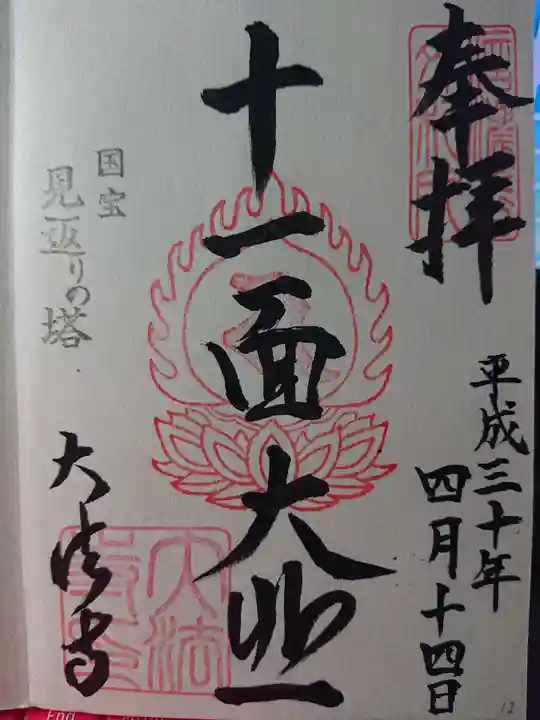 奉拝
平成三十年
四月十四日
十一面大悲
国宝
見返りの塔
大法寺
12
End